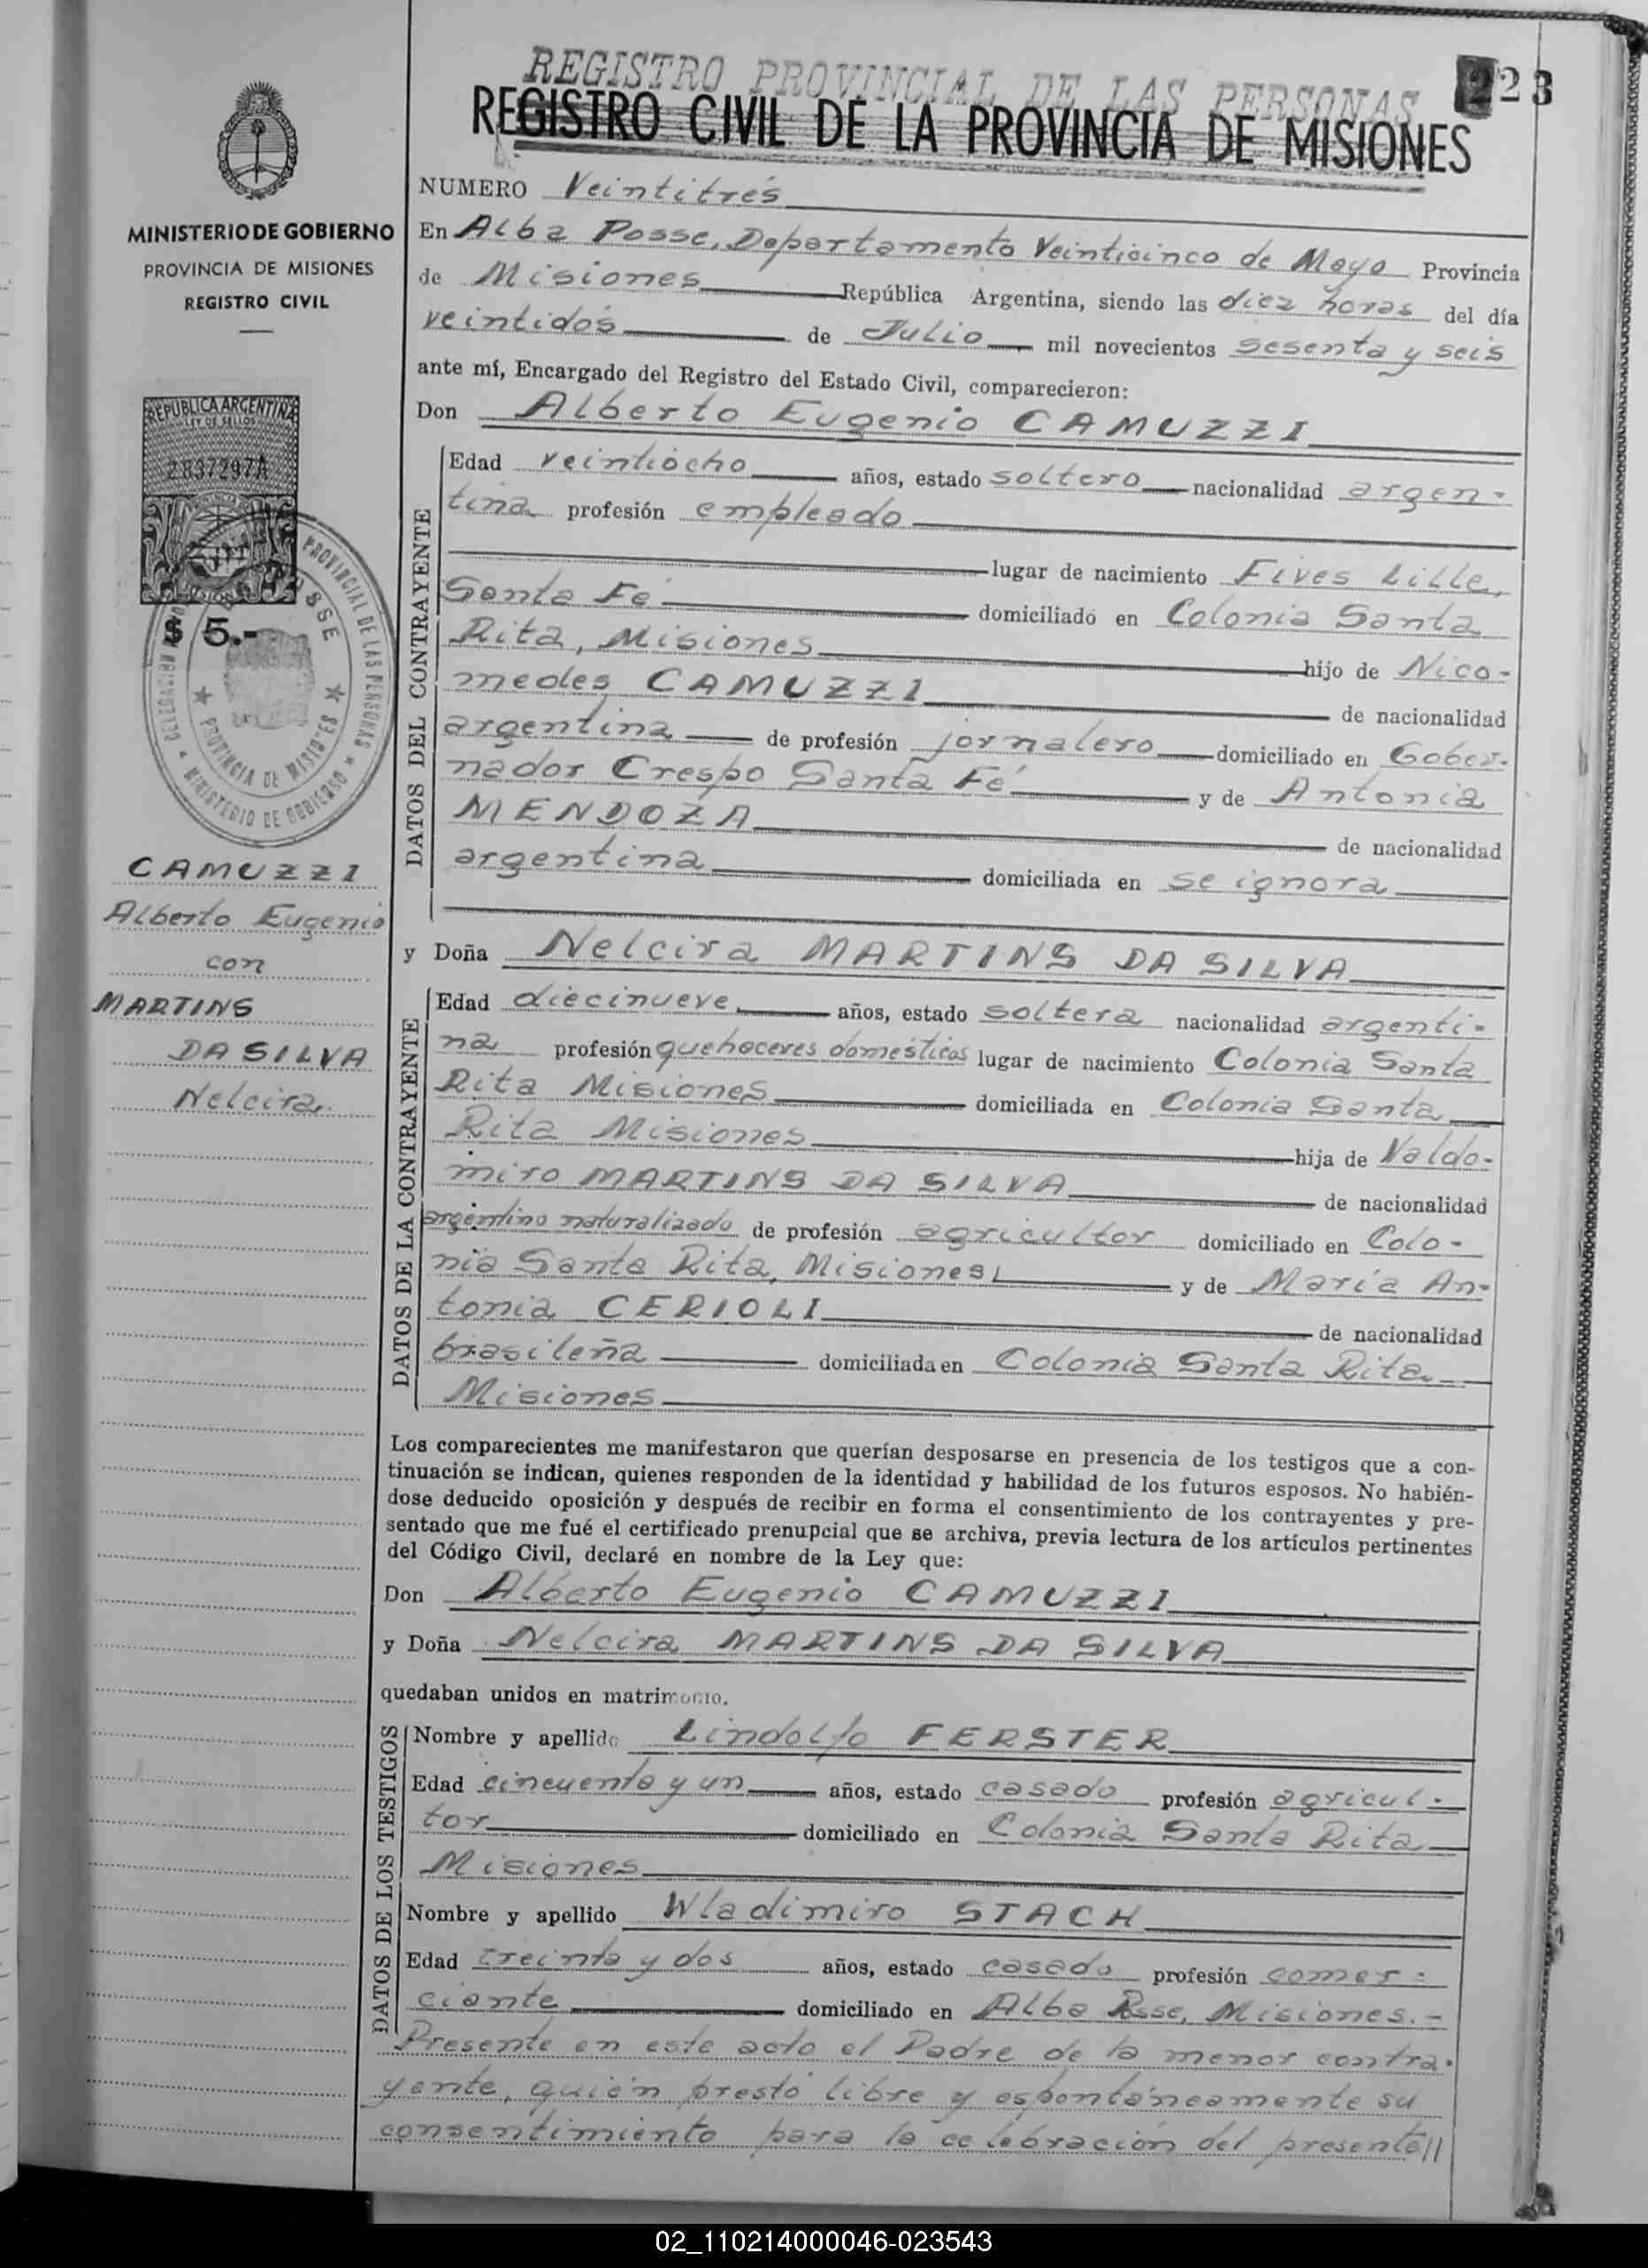 REGISTRO PROVINCIAL DE LAS PERSONAS
23
REGISTRO CIVIL DE LA PROVINCIA DE MISIONES
MINISTERIO DE GOBIERNO
PROVINCIA DE MISIONES
REGISTRO CIVIL
REPUBLICA ARGENTINA
LEY DE SELLOS
2837297A
$ 5.-
PROVINCIAL DE LAS PERSONAS
PROVINCIA DE MISIONES
MINISTERIO DE GOBIERNO
CAMUZZI
Alberto Eugenio
con
MARTINS
DA SILVA
Nelcira.
NUMERO Veintitrés
En Alba Posse, Departamento Veinticinco de Mayo Provincia
de Misiones República Argentina, siendo las diez horas del día
veintidós de Julio mil novecientos sesenta y seis
ante mí, Encargado del Registro del Estado Civil, comparecieron:
Don Alberto Eugenio CAMUZZI
DATOS DEL CONTRAYENTE
Edad veintiocho años, estado soltero nacionalidad argen-
tina profesión empleado
lugar de nacimiento Fives Lille,
Santa Fé domiciliado en Colonia Santa
Rita, Misiones hijo de Nico-
medes CAMUZZI de nacionalidad
argentina de profesión jornalero domiciliado en Gober-
nador Crespo Santa Fé y de Antonia
MENDOZA de nacionalidad
argentina domiciliada en se ignora
y Doña Nelcira MARTINS DA SILVA
DATOS DE LA CONTRAYENTE
Edad diecinueve años, estado soltera nacionalidad argenti-
na profesión quehaceres domésticos lugar de nacimiento Colonia Santa
Rita Misiones domiciliada en Colonia Santa
Rita Misiones hija de Valdo-
miro MARTINS DA SILVA de nacionalidad
argentino naturalizado de profesión agricultor domiciliado en Colo-
nia Santa Rita, Misiones y de María An-
tonia CERIOLI de nacionalidad
brasileña domiciliada en Colonia Santa Rita
Misiones
Los comparecientes me manifestaron que querían desposarse en presencia de los testigos que a con-
tinuación se indican, quienes responden de la identidad y habilidad de los futuros esposos. No habién-
dose deducido oposición y después de recibir en forma el consentimiento de los contrayentes y pre-
sentado que me fué el certificado prenupcial que se archiva, previa lectura de los artículos pertinentes
del Código Civil, declaré en nombre de la Ley que:
Don Alberto Eugenio CAMUZZI
y Doña Nelcira MARTINS DA SILVA
quedaban unidos en matrimonio.
DATOS DE LOS TESTIGOS
Nombre y apellido Lindolfo FERSTER
Edad cincuenta y un años, estado casado profesión agricul-
tor domiciliado en Colonia Santa Rita
Misiones
Nombre y apellido Wladimiro STACH
Edad treinta y dos años, estado casado profesión comer-
ciante domiciliado en Alba Posse, Misiones.-
Presente en este acto el Padre de la menor contra-
yente, quién prestó libre y espontáneamente su
consentimiento para la celebración del presente//
02_110214000046-023543